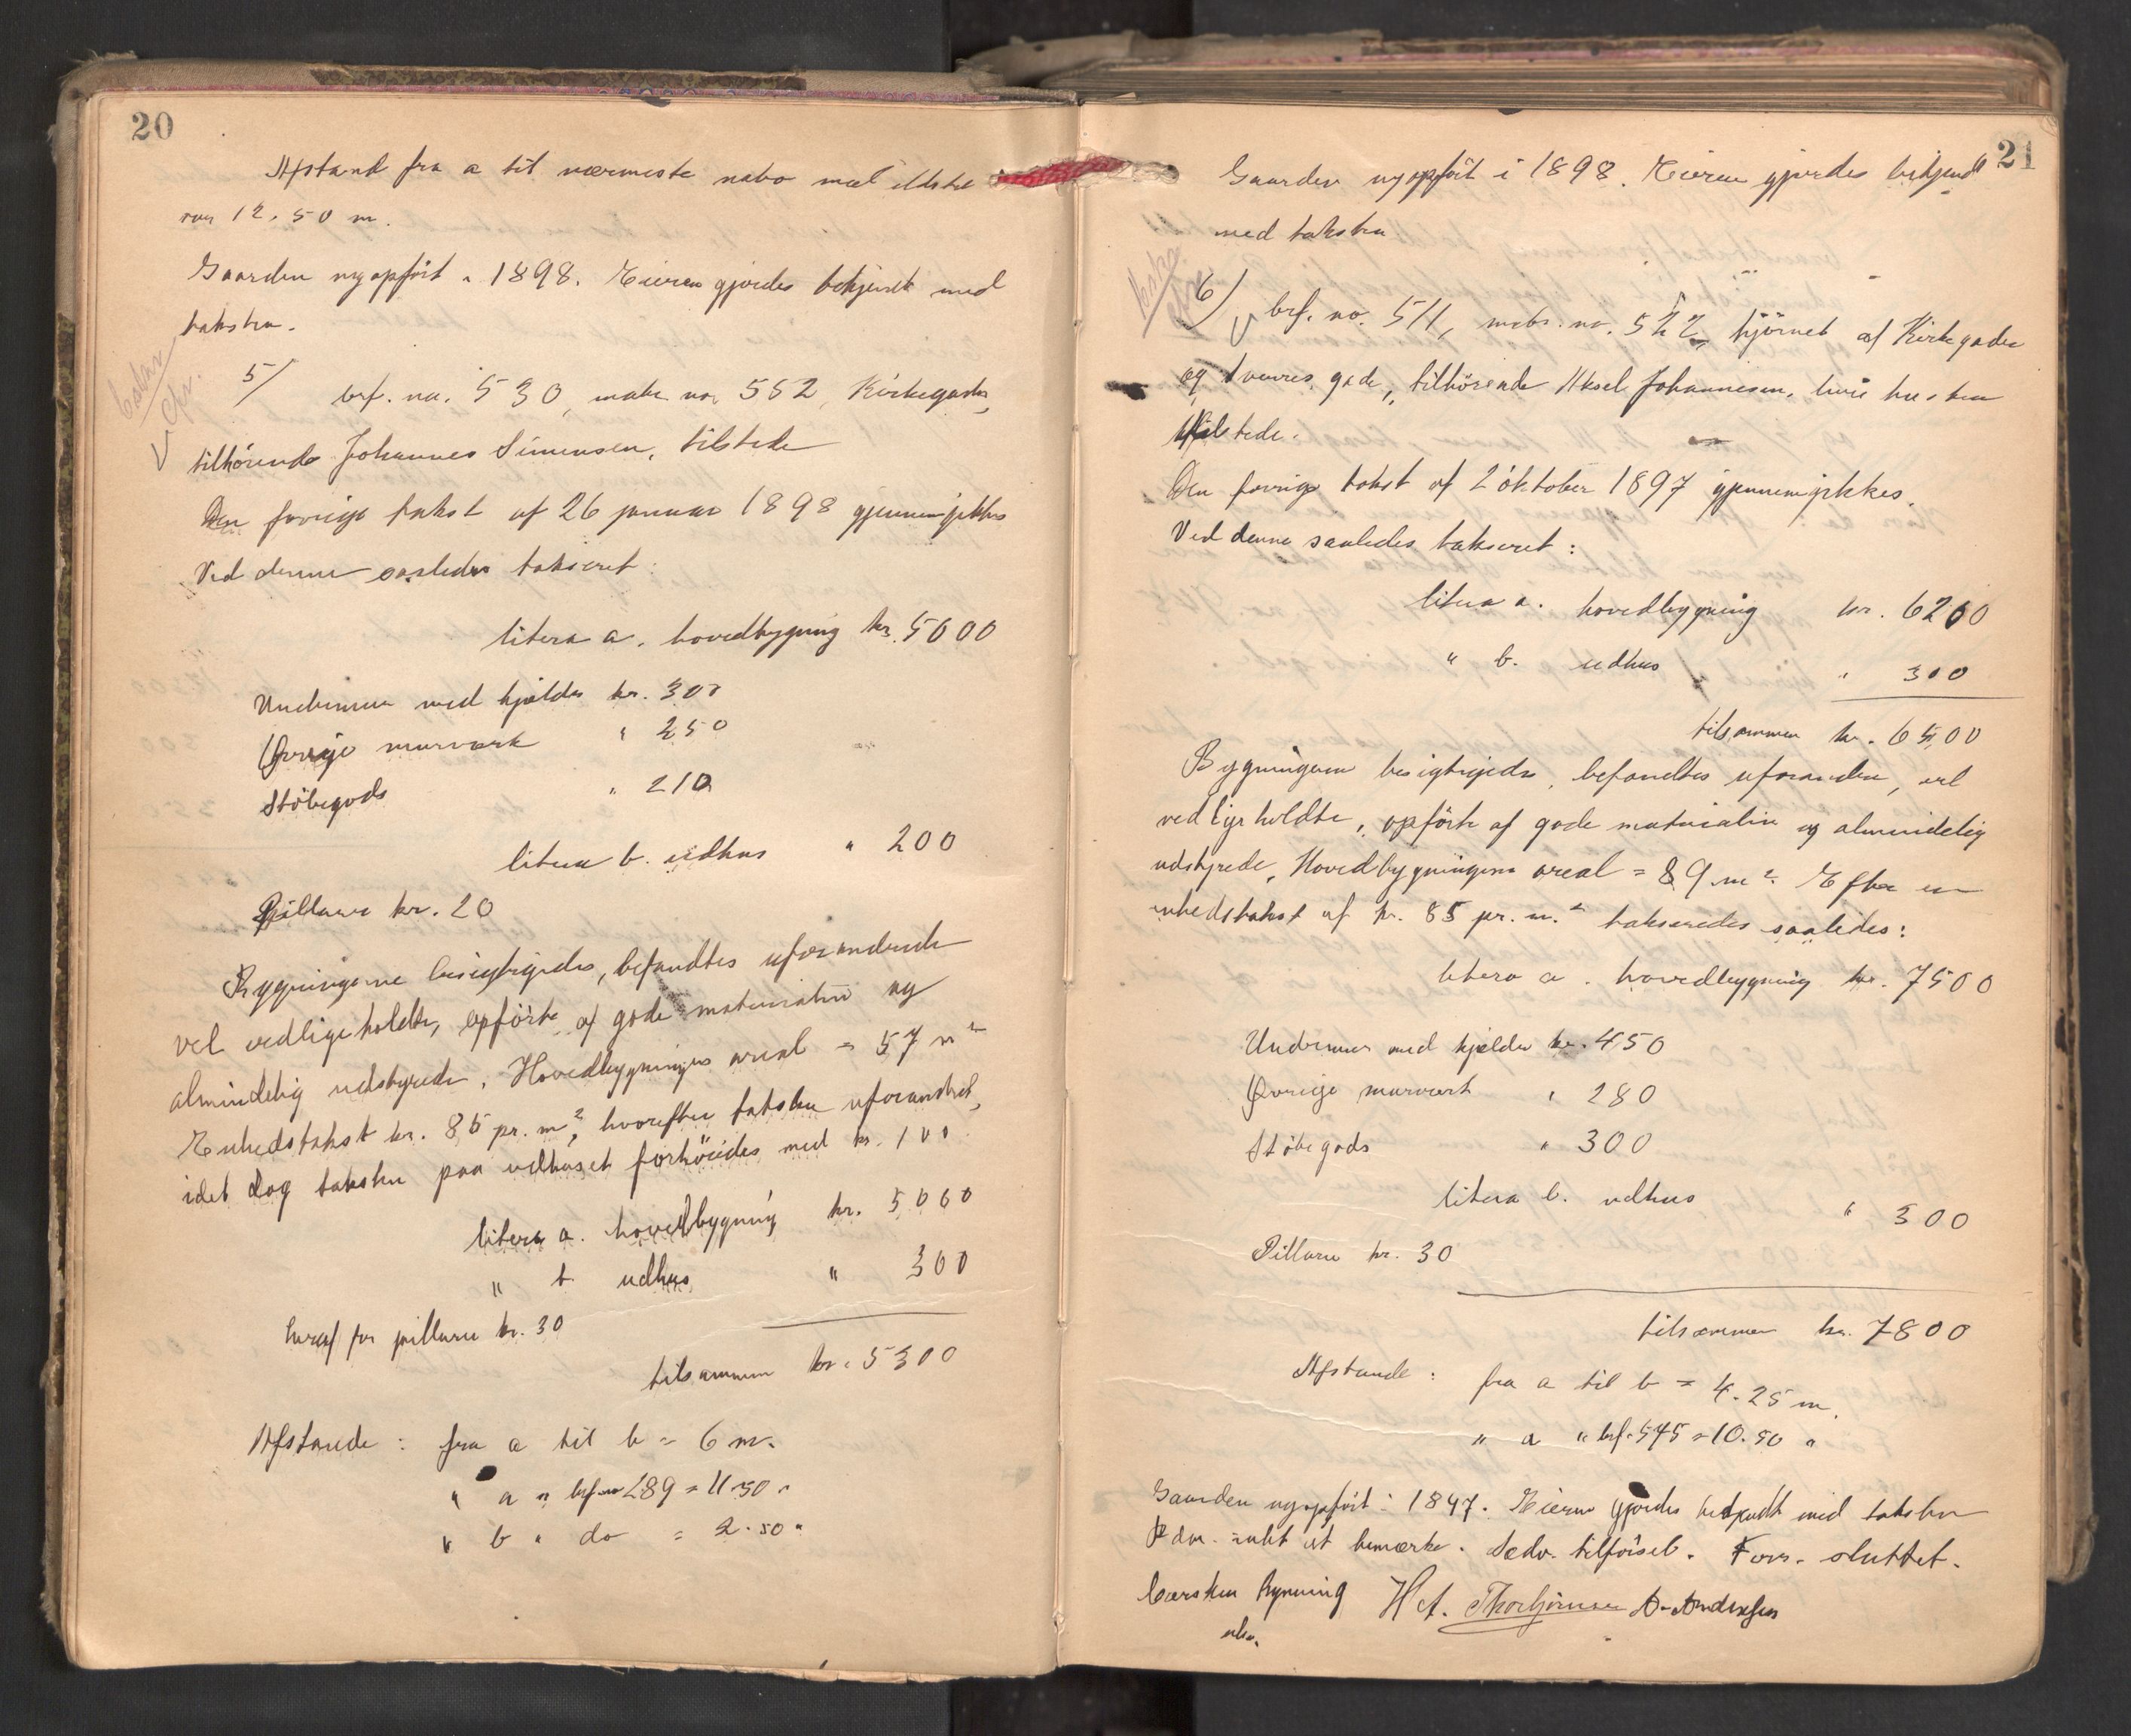 20
Afstand fra a til nærmeste nabo med ildsted
var 12.50 m.
Gaarden nyopført i 1898. Eieren gjordes bekjendt med
taksten.
5/ brf. no. 530, matr. no. 552, Kirkegaden,
tilhørende Johannes Simensen, tilstede
Den forrige takst af 26 januar 1898 gjennemgikkes
Ved denne saaledes takseret:
litera a. hovedbygning kr. 5000
Undermur med kjælder kr. 300
Øvrige murværk " 250
Støbegods " 210
litera b. udhus " 200
Pillarer kr. 20
Bygningerne besigtigedes, befandtes uforandrede
vel vedligeholdte, opførte af gode materialier og
almindelig udstyrede. Hovedbygningens areal = 57 m²
Enhedstakst kr. 85 pr. m², hvorefter taksten uforandret,
idet dog taksten paa udhuset forhöiedes med kr. 100
litera a. hovedbygning kr. 5000
" b. udhus " 300
heraf for pillarer kr. 30
tilsammen kr. 5300
Afstande : fra a til b = 6 m.
" a " brf no 289 = 11.50 "
" b " do = 2.50 "
21
Gaarden nyopført i 1898. Eieren gjordes bekjendt
med taksten
6/ brf. no. 511, matr. no. 522, hjörnet af Kirkegaden
og gade, tilhörende Aksel Johannesen, hvis hustru
tilstede.
Den forrige takst af 2 oktober 1897 gjennemgikkes.
Ved denne saaledes takseret :
litera a. hovedbygning kr. 6200
" b. udhus " 300
tilsammen kr. 6500
Bygningerne besigtigedes, befandtes uforandrede, vel
vedligeholdte, opførte af gode materialier og almindelig
udstyrede. Hovedbygningens areal = 89 m². Efter en
enhedstakst af kr. 85 pr. m.² takseredes saaledes :
litera a. hovedbygning kr. 7500
Undermur med kjælder kr. 450
Øvrige murværk " 280
Støbegods " 300
litera b. udhus " 300
Pillarer kr. 30
tilsammen kr. 7800
Afstande : fra a til b = 4.25 m.
" a " brf. 545 = 10.50 "
Gaarden nyopført i 1897. Eieren gjordes bekjendt med taksten
intet at bemærke. Sedv. tilførsel. Forr. sluttet.
Carsten Rynning H. A. Thorbjørnsen A. Andersen